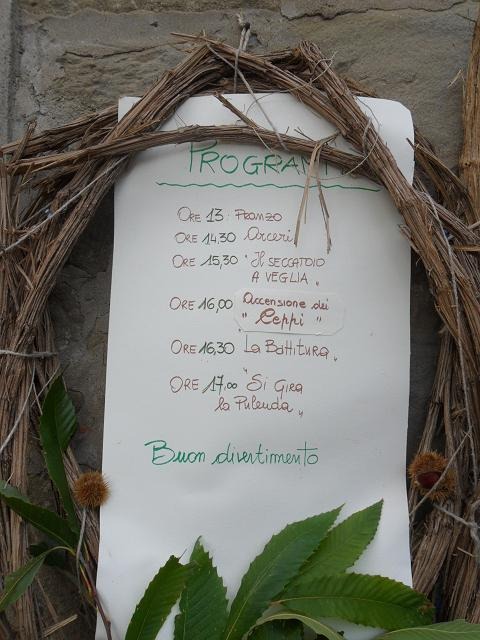 PROGRAMMA
ORE 13: PRANZO
ORE 14,30 Arceri
ORE 15,30 "IL SECCATOIO
A VEGLIA"
ORE 16,00 Accensione dei
"Ceppi"
ORE 16,30 "La Battitura"
ORE 17,00 "Si Gira
la Pulenda"
Buon divertimento